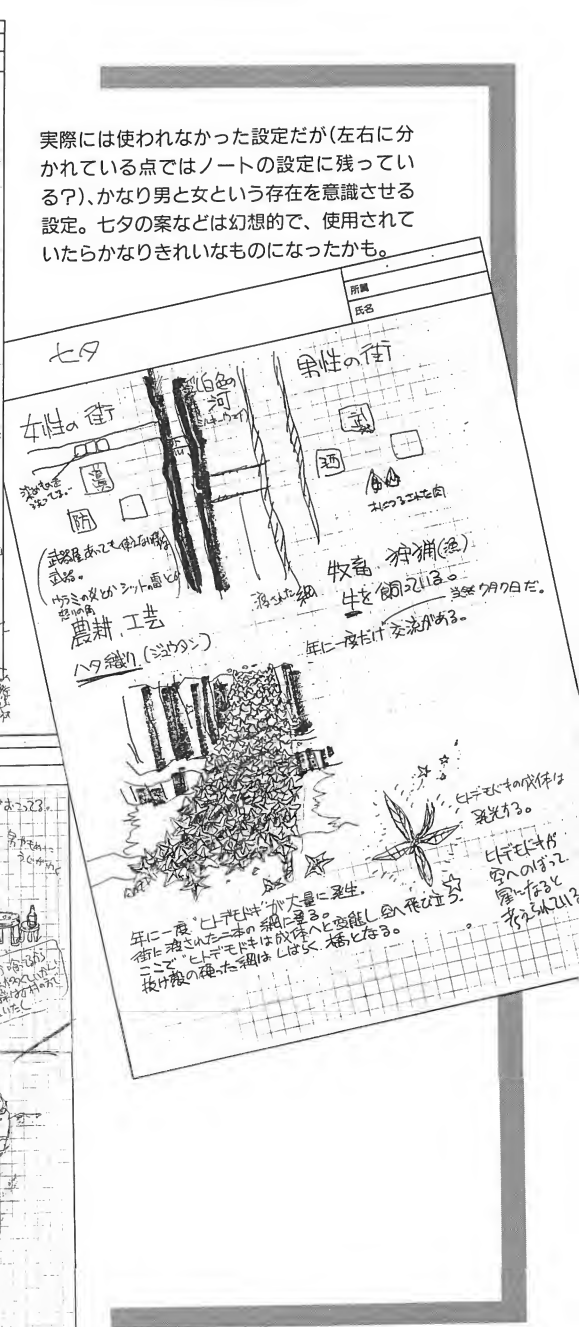 実際には使われなかった設定だが(左右に分
かれている点ではノートの設定に残ってい
る?)、かなり男と女という存在を意識させる
設定。七夕の案などは幻想的で、使用されて
いたらかなりきれいなものになったかも。
所属
氏名
七夕
女性の街
白色の
河
(ミルキーウェイ)
男性の街
染めものを
洗ってる。
防
武
酒
木につるされた肉
武器屋あっても使えない
武器。
怒りの角
農耕、工芸
ハタ織り(ジュウタン)
渡された綱
牧畜 狩猟(漁)
牛を飼っている。
当然7月7日だ。
年に一度だけ交流がある。
ヒトデモドキの成体は
発光する。
ヒトデモドキが
空へのぼって
星になると
考えられている
年に一度"ヒトデモドキ"が大量に発生。
街に渡された二本の綱に登る。
ここで"ヒトデモドキは成体へと変態し空へ飛び立つ。
抜け殻の残った綱はしばらく橋となる。